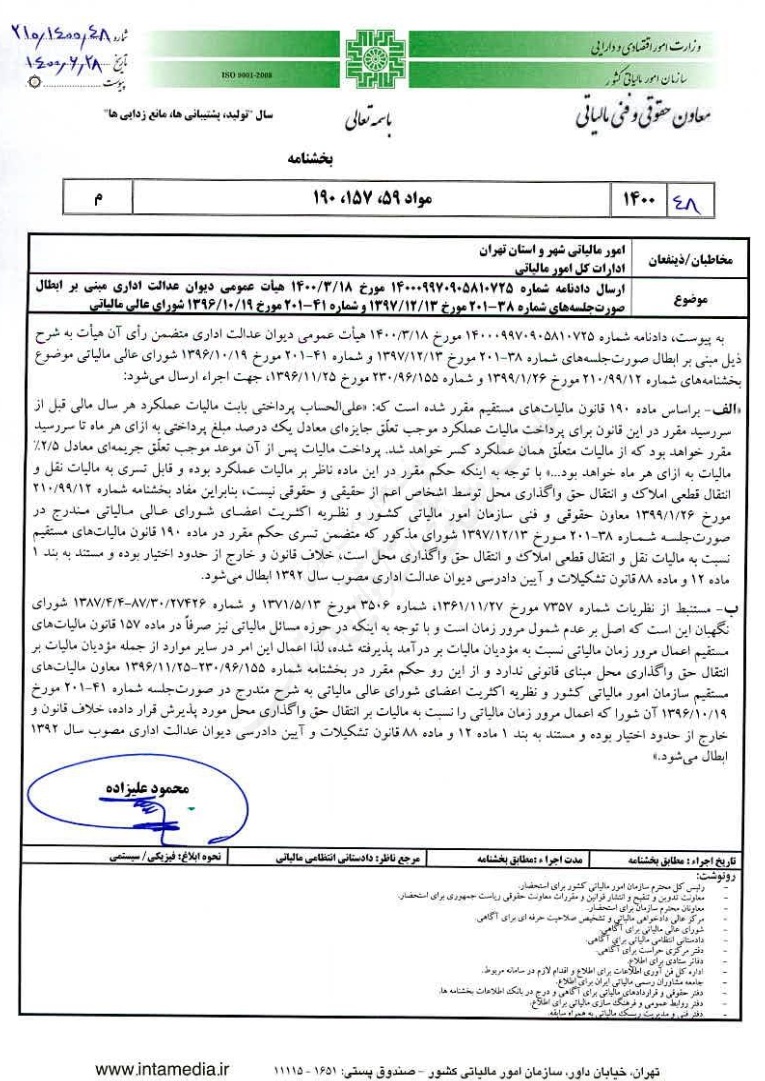 شماره ۲۱۰٫۱۴۰۰٫۴۸
وزارت امور اقتصادی و دارایی
تاریخ ۱۴۰۰٫۶٫۲۸
ISO 9001-2008
سازمان امور مالیاتی کشور
پیوست
معاون حقوقی و فنی مالیاتی
باسمه تعالی
سال "تولید، پشتیبانی ها، مانع زدایی ها"
بخشنامه
۴۸ ۱۴۰۰ مواد ۵۹، ۱۵۷، ۱۹۰ م
مخاطبان/ذینفعان امور مالیاتی شهر و استان تهران
ادارات کل امور مالیاتی
موضوع ارسال دادنامه شماره ۱۴۰۰۰۹۹۷۰۹۰۵۸۱۰۷۲۵ مورخ ۱۴۰۰/۳/۱۸ هیأت عمومی دیوان عدالت اداری مبنی بر ابطال
صورت‌جلسه‌های شماره ۳۸-۲۰۱ مورخ ۱۳۹۷/۱۲/۱۳ و شماره ۴۱-۲۰۱ مورخ ۱۳۹۶/۱۰/۱۹ شورای عالی مالیاتی
به پیوست، دادنامه شماره ۱۴۰۰۰۹۹۷۰۹۰۵۸۱۰۷۲۵ مورخ ۱۴۰۰/۳/۱۸ هیأت عمومی دیوان عدالت اداری متضمن رأی آن هیأت به شرح
ذیل مبنی بر ابطال صورت‌جلسه‌های شماره ۳۸-۲۰۱ مورخ ۱۳۹۷/۱۲/۱۳ و شماره ۴۱-۲۰۱ مورخ ۱۳۹۶/۱۰/۱۹ شورای عالی مالیاتی موضوع
بخشنامه‌های شماره ۲۱۰/۹۹/۱۲ مورخ ۱۳۹۹/۱/۲۶ و شماره ۲۳۰/۹۶/۱۵۵ مورخ ۱۳۹۶/۱۱/۲۵، جهت اجراء ارسال می‌شود:
«الف- براساس ماده ۱۹۰ قانون مالیات‌های مستقیم مقرر شده است که: «علی‌الحساب پرداختی بابت مالیات عملکرد هر سال مالی قبل از
سررسید مقرر در این قانون برای پرداخت مالیات عملکرد موجب تعلّق جایزه‌ای معادل یک درصد مبلغ پرداختی به ازای هر ماه تا سررسید
مقرر خواهد بود که از مالیات متعلّق همان عملکرد کسر خواهد شد. پرداخت مالیات پس از آن موعد موجب تعلّق جریمه‌ای معادل ۲/۵٪
مالیات به ازای هر ماه خواهد بود...» با توجه به اینکه حکم مقرر در این ماده ناظر بر مالیات عملکرد بوده و قابل تسری به مالیات نقل و
انتقال قطعی املاک و انتقال حق واگذاری محل توسط اشخاص اعم از حقیقی و حقوقی نیست، بنابراین مفاد بخشنامه شماره ۲۱۰/۹۹/۱۲
مورخ ۱۳۹۹/۱/۲۶ معاون حقوقی و فنی سازمان امور مالیاتی کشور و نظریه اکثریت اعضای شورای عالی مالیاتی مندرج در
صورت‌جلسه شماره ۳۸-۲۰۱ مورخ ۱۳۹۷/۱۲/۱۳ شورای مذکور که متضمن تسری حکم مقرر در ماده ۱۹۰ قانون مالیات‌های مستقیم
نسبت به مالیات نقل و انتقال قطعی املاک و انتقال حق واگذاری محل است، خلاف قانون و خارج از حدود اختیار بوده و مستند به بند ۱
ماده ۱۲ و ماده ۸۸ قانون تشکیلات و آیین دادرسی دیوان عدالت اداری مصوب سال ۱۳۹۲ ابطال می‌شود.
ب- مستنبط از نظریات شماره ۷۳۵۷ مورخ ۱۳۶۱/۱۱/۲۷، شماره ۳۵۰۶ مورخ ۱۳۷۱/۵/۱۳ و شماره ۸۷/۳۰/۲۷۴۲۶-۱۳۸۷/۴/۴ شورای
نگهبان این است که اصل بر عدم شمول مرور زمان است و با توجه به اینکه در حوزه مسائل مالیاتی نیز صرفاً در ماده ۱۵۷ قانون مالیات‌های
مستقیم اعمال مرور زمان مالیاتی نسبت به مؤدیان مالیات بر درآمد پذیرفته شده، لذا اعمال این امر در سایر موارد از جمله مؤدیان مالیات بر
انتقال حق واگذاری محل مبنای قانونی ندارد و از این رو حکم مقرر در بخشنامه شماره ۲۳۰/۹۶/۱۵۵-۱۳۹۶/۱۱/۲۵ معاون مالیات‌های
مستقیم سازمان امور مالیاتی کشور و نظریه اکثریت اعضای شورای عالی مالیاتی به شرح مندرج در صورت‌جلسه شماره ۴۱-۲۰۱ مورخ
۱۳۹۶/۱۰/۱۹ آن شورا که اعمال مرور زمان مالیاتی را نسبت به مالیات بر انتقال حق واگذاری محل مورد پذیرش قرار داده، خلاف قانون و
خارج از حدود اختیار بوده و مستند به بند ۱ ماده ۱۲ و ماده ۸۸ قانون تشکیلات و آیین دادرسی دیوان عدالت اداری مصوب سال ۱۳۹۲
ابطال می‌شود.»
محمود علیزاده
تاریخ اجراء: مطابق بخشنامه مدت اجراء: مطابق بخشنامه مرجع ناظر: دادستانی انتظامی مالیاتی نحوه ابلاغ: فیزیکی/سیستمی
رونوشت:
- رئیس کل محترم سازمان امور مالیاتی کشور برای استحضار.
- معاونت تدوین و تنقیح و انتشار قوانین و مقررات معاونت حقوقی ریاست جمهوری برای استحضار.
- معاونان محترم سازمان برای استحضار.
- مرکز عالی دادخواهی مالیاتی و تشخیص صلاحیت حرفه ای برای آگاهی.
- شورای عالی مالیاتی برای آگاهی.
- دادستانی انتظامی مالیاتی برای آگاهی.
- دفتر مرکزی حراست برای آگاهی.
- دفاتر ستادی برای اطلاع.
- اداره کل فن آوری اطلاعات برای اطلاع و اقدام لازم در سامانه مربوط.
- جامعه مشاوران رسمی مالیاتی ایران برای اطلاع.
- دفتر حقوقی و قراردادهای مالیاتی برای آگاهی و درج در بانک اطلاعات بخشنامه ها.
- دفتر روابط عمومی و فرهنگ سازی مالیاتی برای اطلاع.
- دفتر فنی و مدیریت ریسک مالیاتی به همراه سابقه.
تهران، خیابان داور، سازمان امور مالیاتی کشور - صندوق پستی: ۱۶۵۱ - ۱۱۱۱۵ www.intamedia.ir